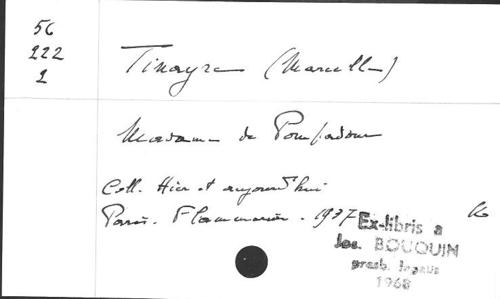 56
222
2
Tinayre (Marcelle)
Madame de Pompadour
Coll. Hier et aujourd'hui
Paris. Flammarion. 1937
Ex-libris a
Jos. BOUQUIN
presb.
1968